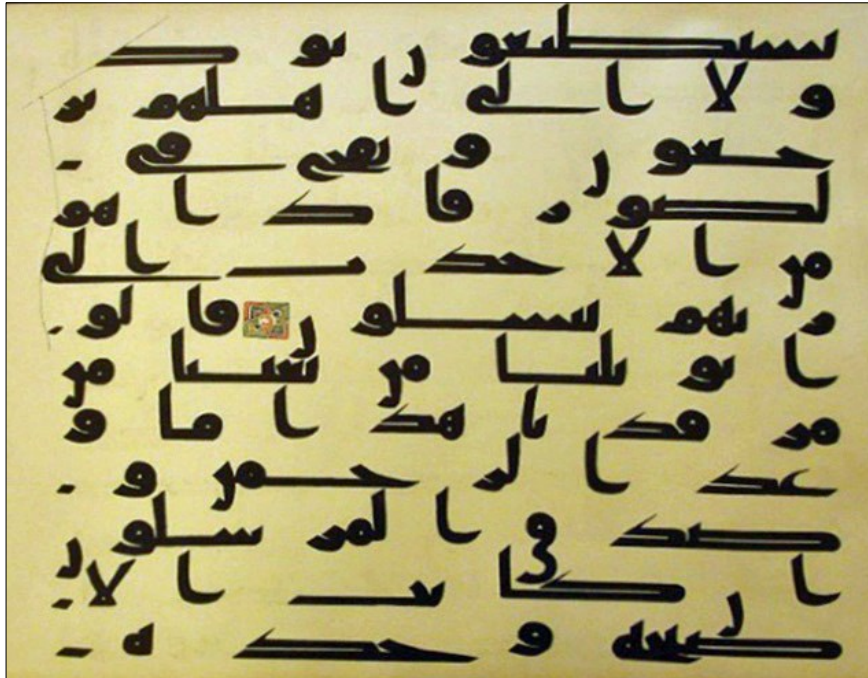 يستطيعون توصـ
ولا الى اهلهم ير
جعون ونفخ في ا
لصور فاذا هم
من الاجداث الى ر
بهم ينسلون قالو
ا يويلنا من بعثنا من
مرقدنا هذا ما و
عد الرحمن و
صدق المرسلون
ان كانت الا
صيحة وحدة